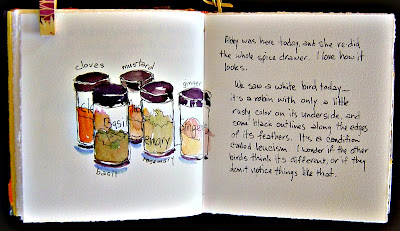 cloves mustard
ginger
Basil
basil
rosemary
Abby was here today, and she re-did
the whole spice drawer. I love how it
looks.
We saw a white bird today —
it's a robin with only a little
rusty color on its underside, and
some black outlines along the edges
of its feathers. It's a condition
called leucism. I wonder if the other
birds think it's different, or if they
don't notice things like that.